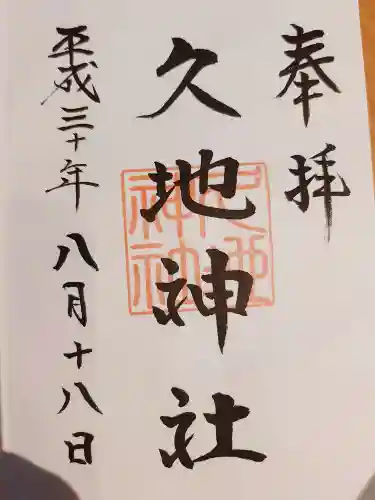 奉拝
久地神社
平成三十年八月十八日